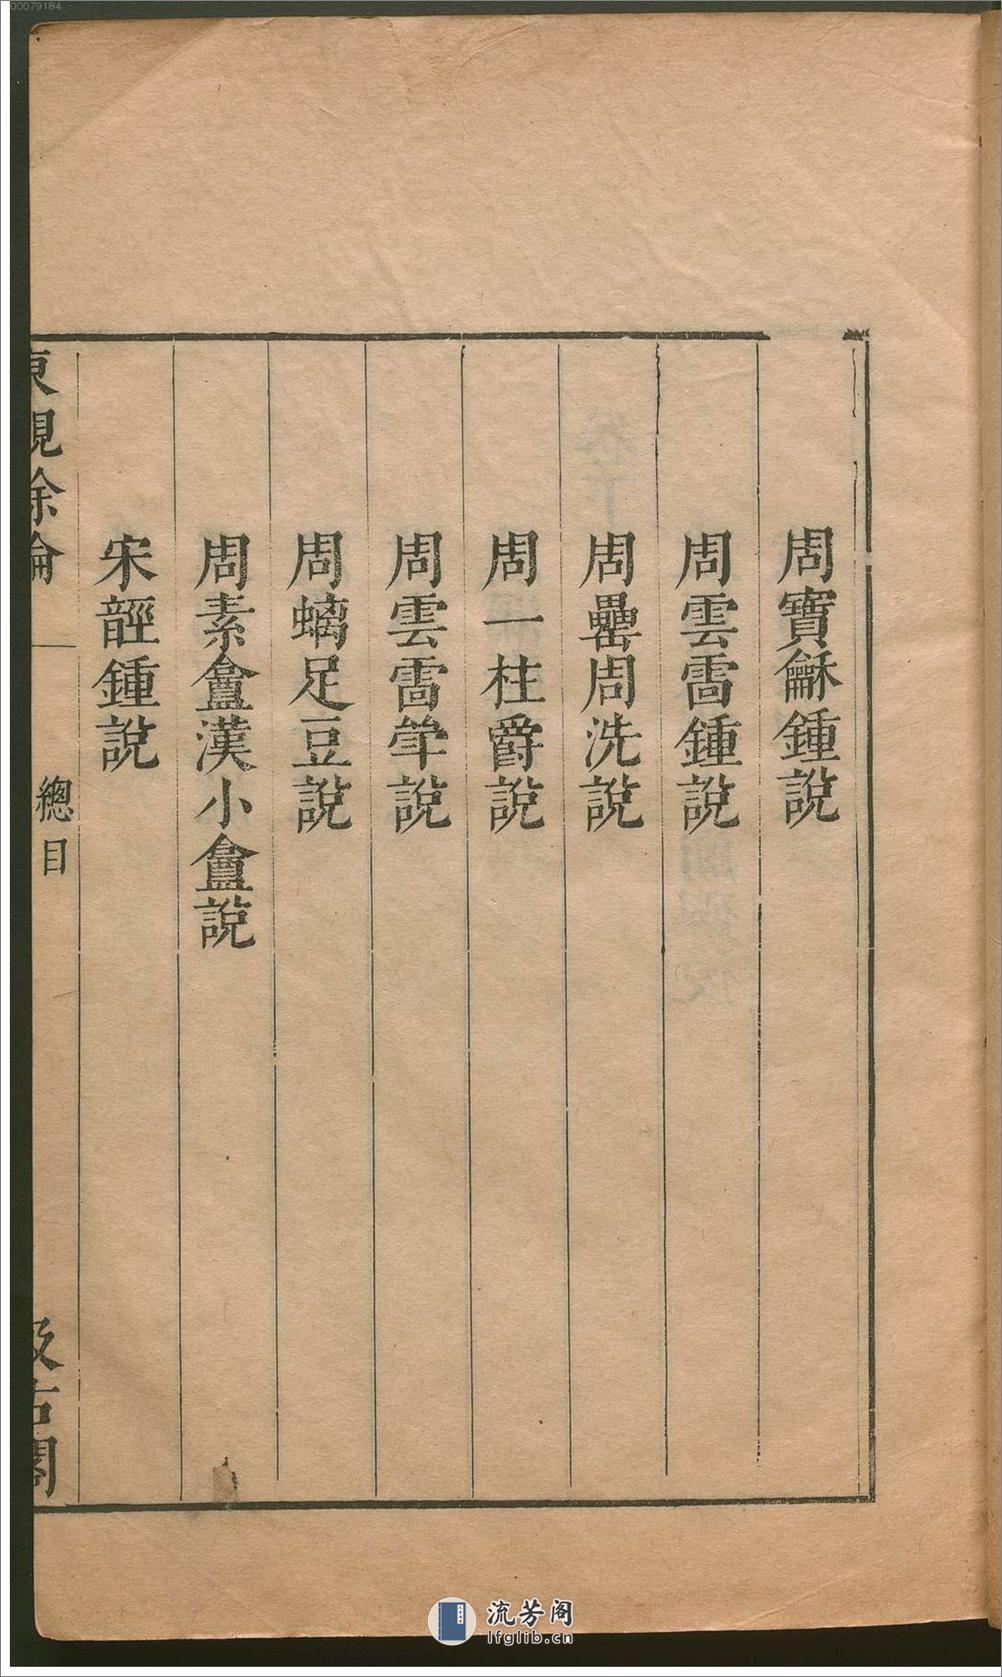 周寶龢鍾說
周雲雷鍾說
周罍周洗說
周一柱爵說
周雲雷斝說
周螭足豆說
周素盦漢小盦說
宋䪫鍾說
東觀餘論
總目
汲古閣
00079184
流芳阁
lfglib.cn